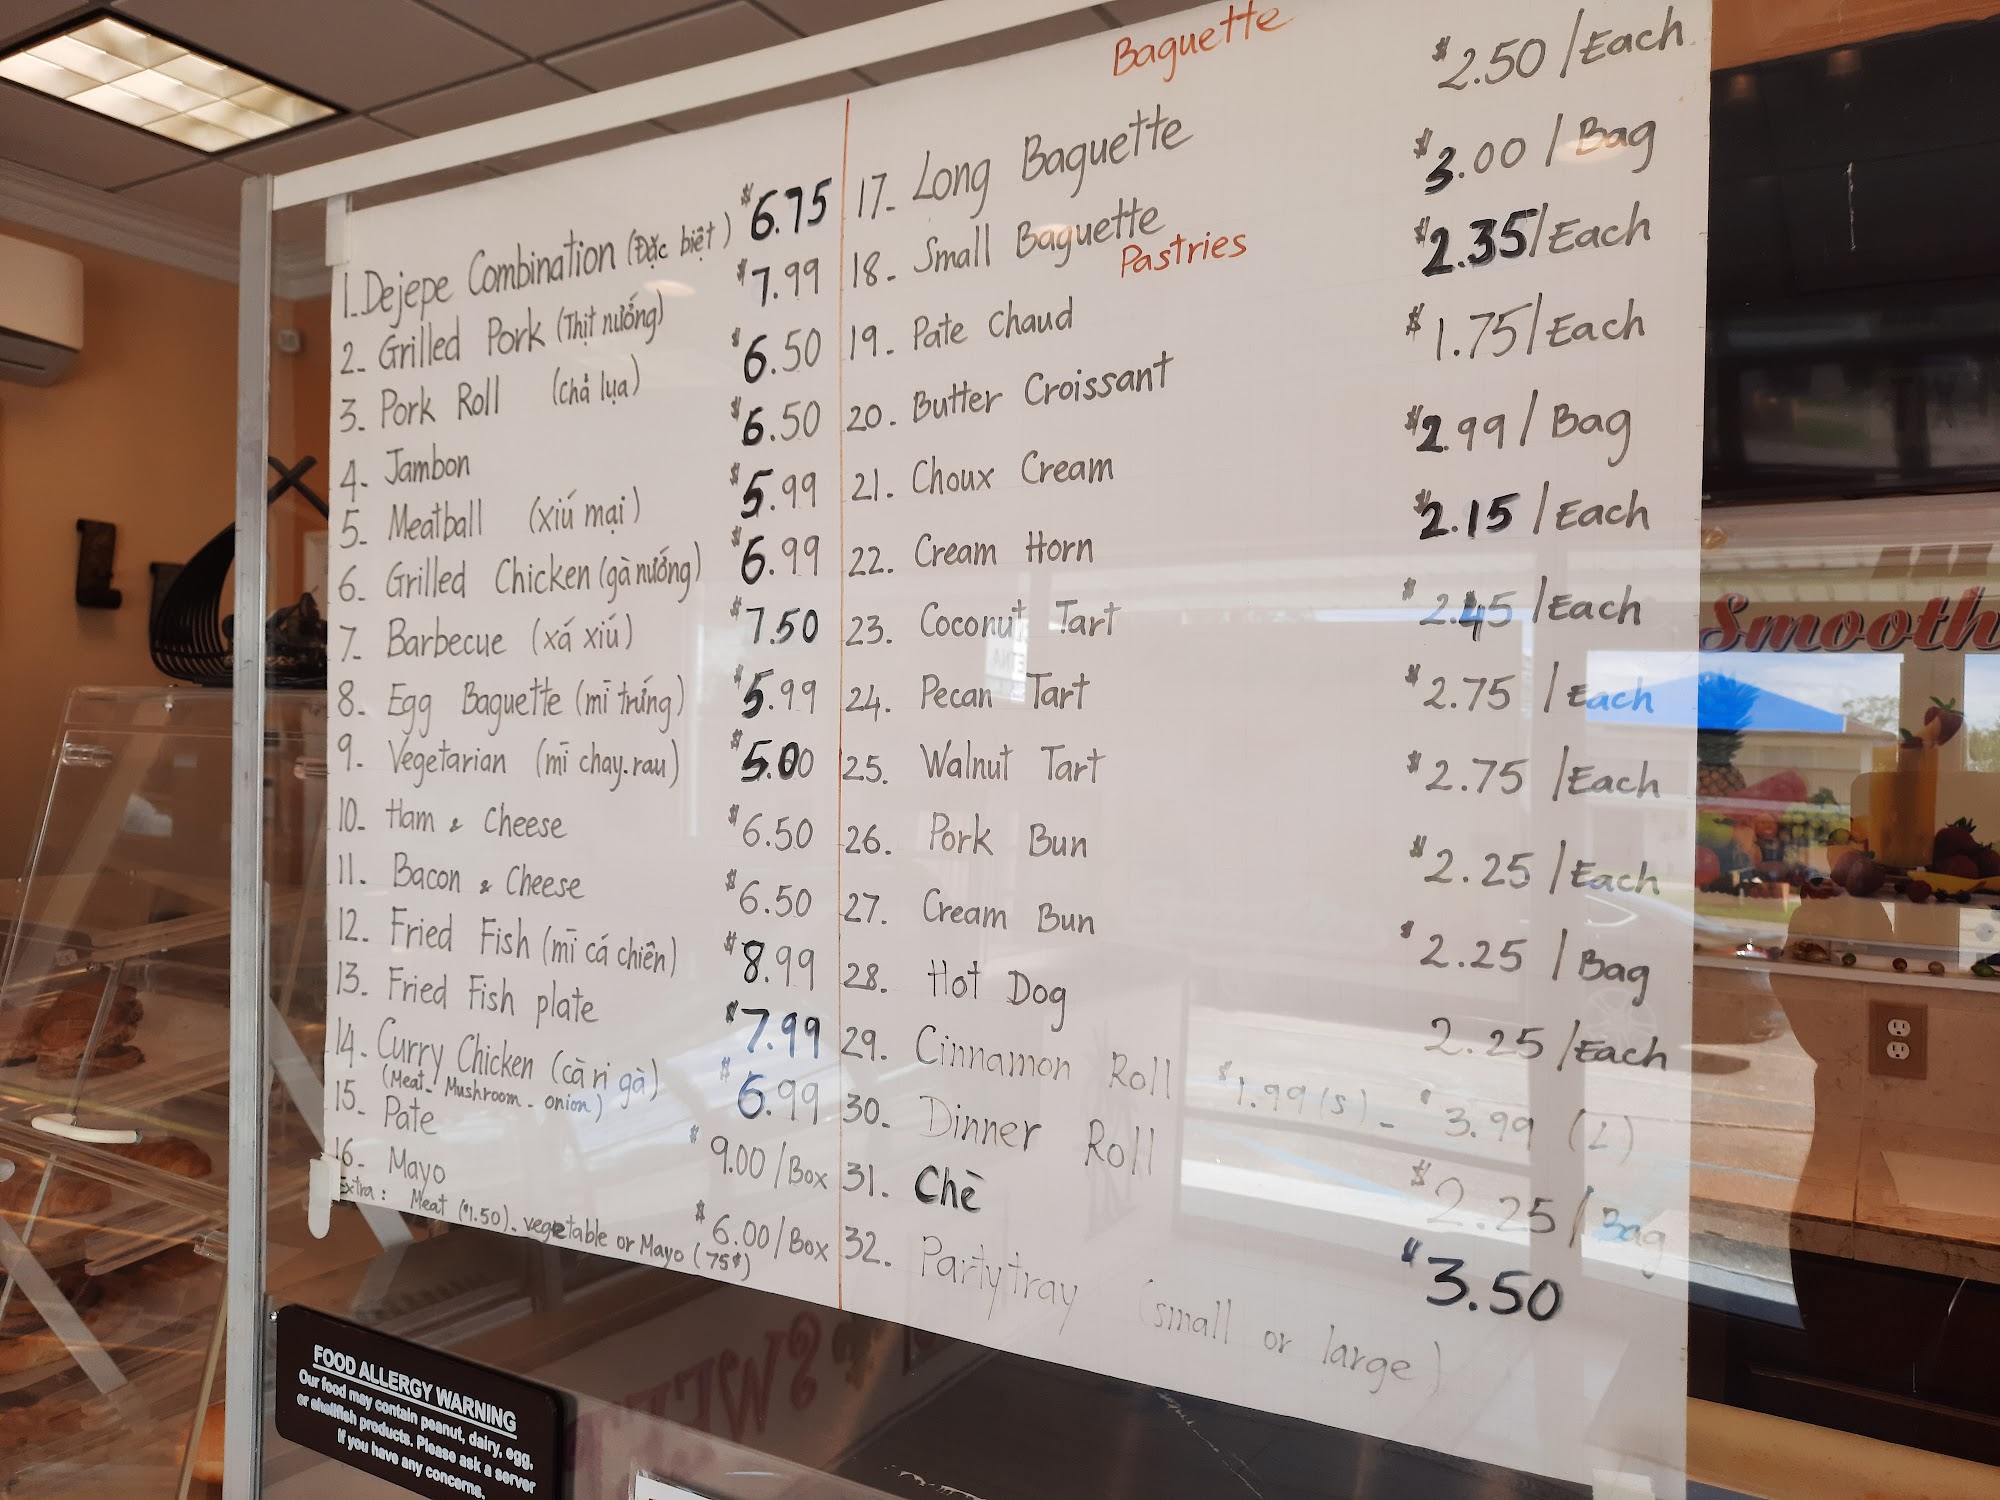 Baguette
1_ Dejepe Combination (Đặc biệt) $6.75
2_ Grilled Pork (Thịt nướng) $7.99
3_ Pork Roll (chả lụa) $6.50
4_ Jambon $6.50
5_ Meatball (xiú mại) $5.99
6_ Grilled Chicken (gà nướng) $6.99
7_ Barbecue (xá xiú) $7.50
8_ Egg Baguette (mī trứng) $5.99
9_ Vegetarian (mī chay.rau) $5.00
10_ Ham & Cheese $6.50
11_ Bacon & Cheese $6.50
12_ Fried Fish (mī cá chiên) $8.99
13_ Fried Fish plate $7.99
14_ Curry Chicken (cà ri gà) $6.99
(Meat_ Mushroom_ onion)
15_ Pate $9.00/Box
16_ Mayo $6.00/Box
Extra: Meat ($1.50)_ vegetable or Mayo (75¢)
17_ Long Baguette $2.50/Each
18_ Small Baguette $3.00/Bag
Pastries
19_ Pate chaud $2.35/Each
20. Butter Croissant $1.75/Each
21. Choux Cream $2.99/Bag
22. Cream Horn $2.15/Each
23. Coconut Tart $2.45/Each
24. Pecan Tart $2.75/Each
25. Walnut Tart $2.75/Each
26. Pork Bun $2.25/Each
27. Cream Bun $2.25/Bag
28. Hot Dog 2.25/Each
29. Cinnamon Roll $1.99(s)_ $3.99 (L)
30. Dinner Roll $2.25/Bag
31. Chè $3.50
32. Partytray (small or large)
FOOD ALLERGY WARNING
Our food may contain peanut, dairy, egg,
or shellfish products. Please ask a server
if you have any concerns.
Smooth